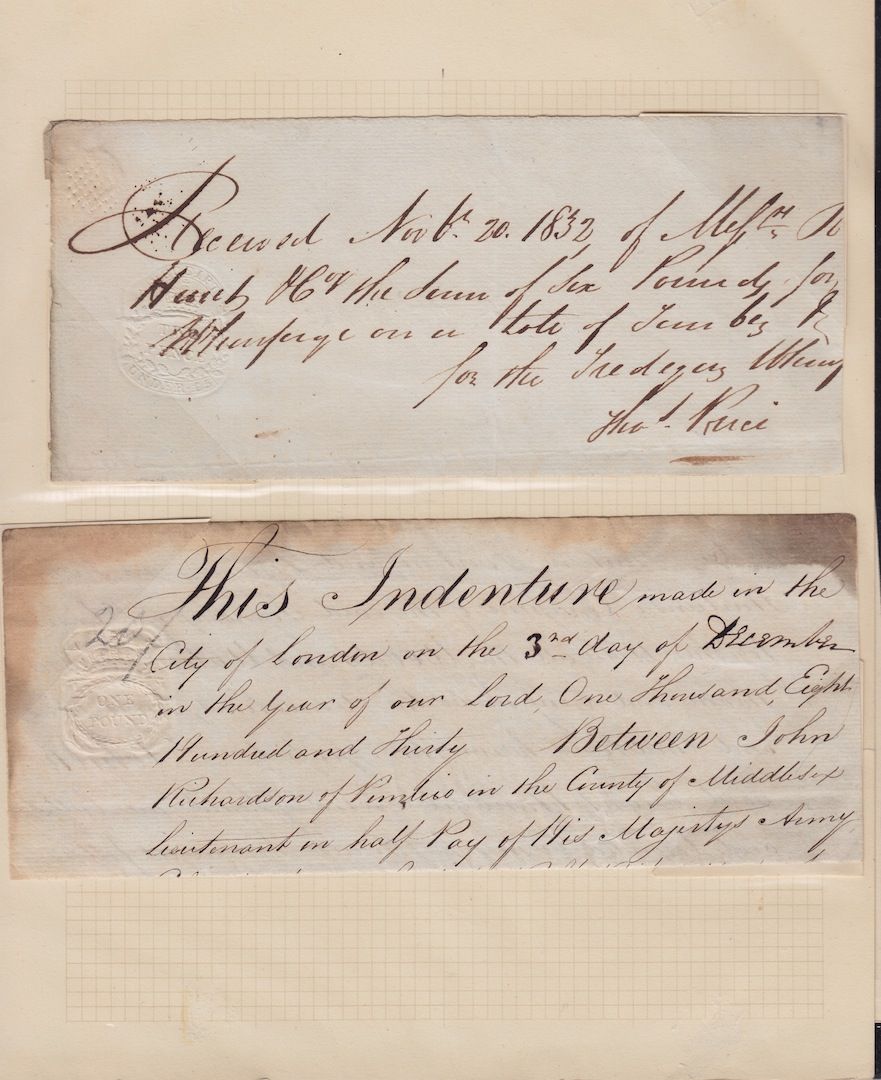 Received Novbr. 20. 1832 of Messrs
Hunt & Co the Sum of Six Pounds for
Wharfage on a Lote of
for the Tredegar
Thos. Price
UNDER
20
This Indenture made in the
City of London on the 3rd day of December
in the Year of our Lord, One Thousand, Eight
Hundred and Thirty Between John
Richardson of Pimlico in the County of Middlesex
Lieutenant on half Pay of His Majestys Army
ONE
POUND